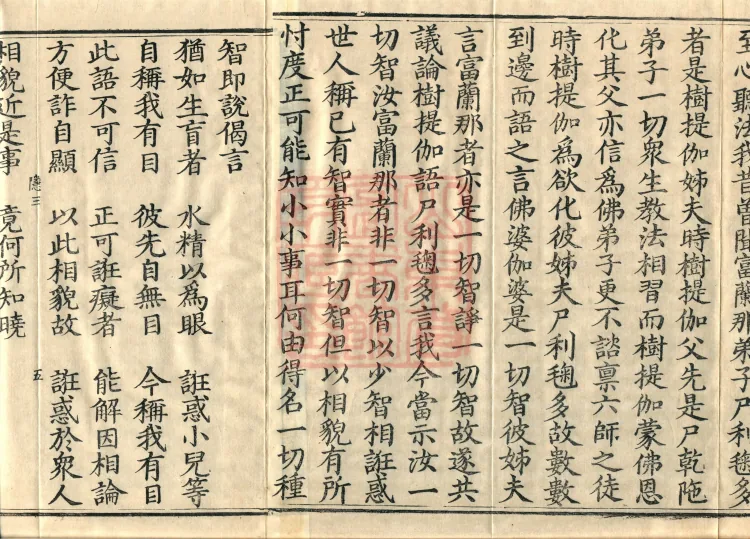 至心聽法我昔曽聞富蘭那弟子尸利毱多
者是樹提伽姊夫時樹提伽父先是尸乾陁
弟子一切衆生教法相習而樹提伽蒙佛恩
化其父亦信爲佛弟子更不諮禀六師之徒
時樹提伽爲欲化彼姊夫尸利毱多故數數
到邊而語之言佛婆伽婆是一切智彼姊夫
言富蘭那者亦是一切智諍一切智故遂共
議論樹提伽語尸利毱多言我今當示汝一
切智汝富蘭那者非一切智以少智相誑惑
世人稱已有智實非一切智但以相貌有所
忖度正可能知小小事耳何由得名一切種
智即説偈言
猶如生盲者 水精以爲眼 誑惑小兒等
自稱我有目 彼先自無目 今稱我有目
此語不可信 正可誑癡者 能解因相論
方便詐自顯 以此相貌故 誑惑於衆人
隱三 五
相貌近是事 竟何所知曉